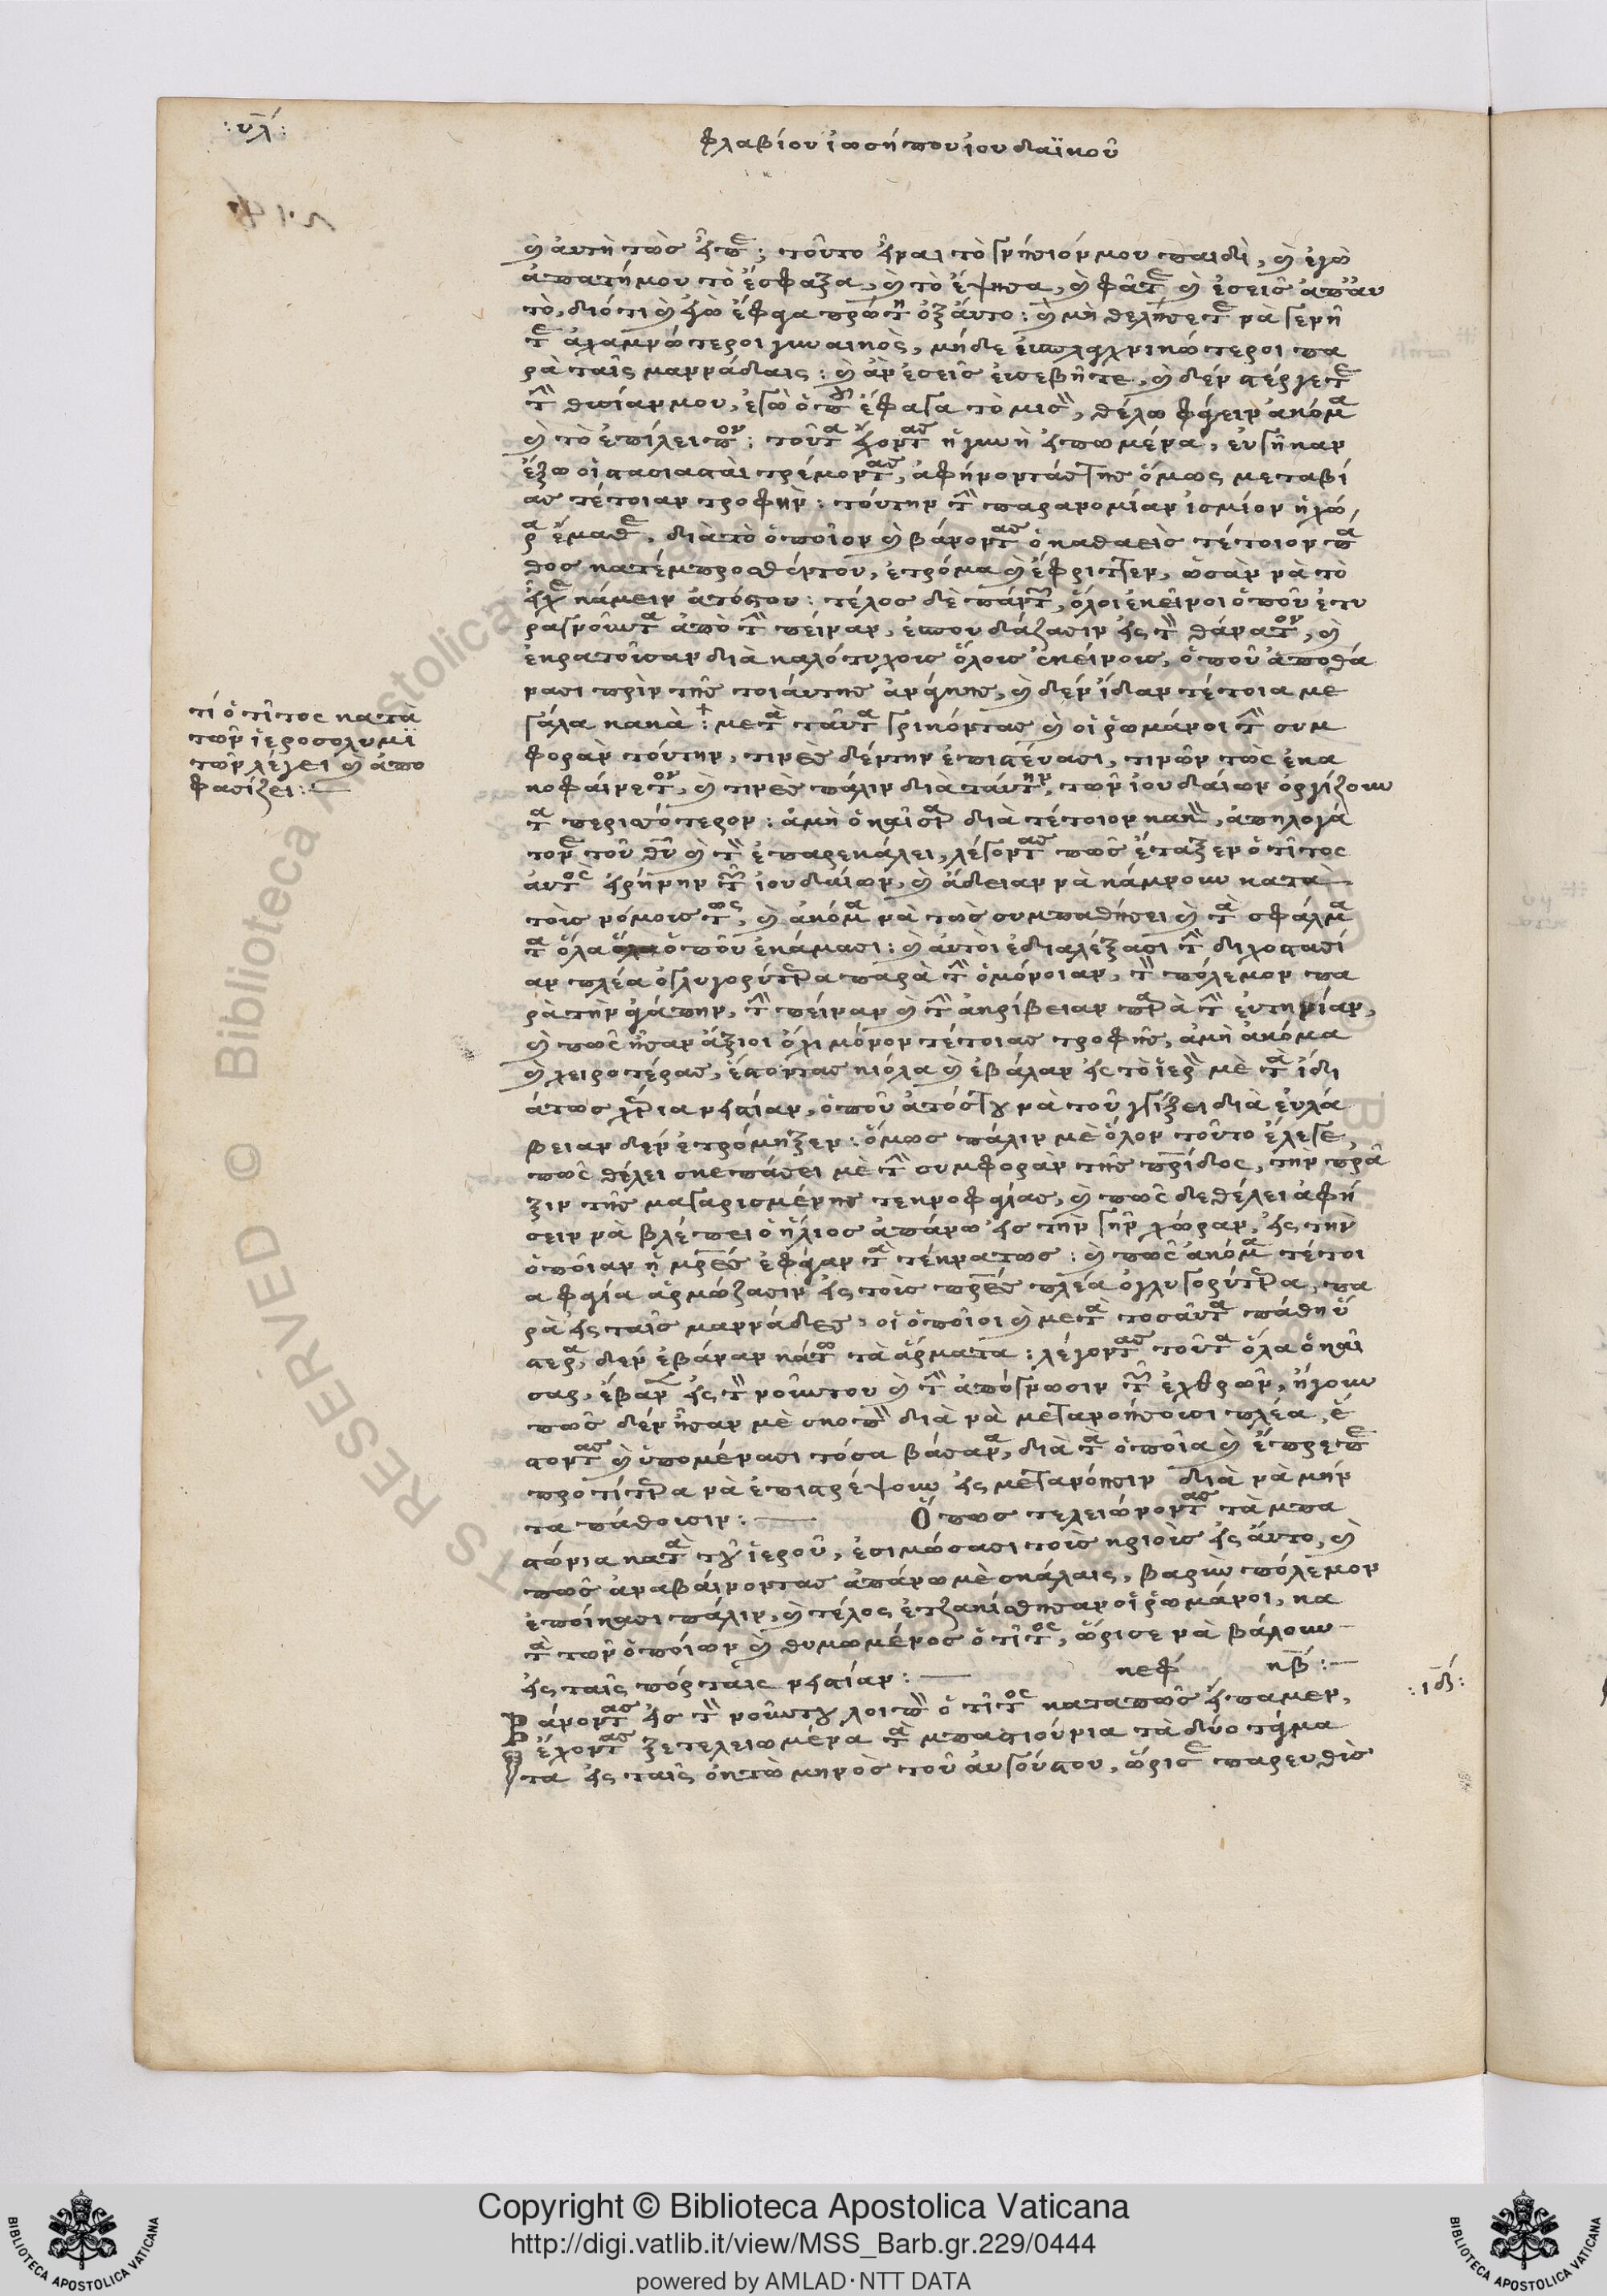 :υλ:
φλαβίου ἰωσήπου ἰουδαϊκοῦ
κ αὐτὴ τοὺς εἶπε; τοῦτο εἶναι τὸ γνήσιόν μου παιδὶ, κ ἐγὼ
ἀπατή μου τὸ ἔσφαξα, κ τὸ ἔψησα, κ φᾶτε κ ἐσεῖς ἀπ' αὐ
τὸ, διότι κ ἐγὼ ἔφαγα πρώτη ὀξ αὐτο: κ μὴ θελήσετε νὰ γενῆ
τε ἀχαμνώτεροι γυναικὸς, μήδε εὐσπλαχνικώτεροι πα
ρὰ ταῖς μαννάδαις: κ ἂν ἐσεῖς εὐσεβῆτε, κ δὲν στέργετε
τὴν θυσίαν μου, ἐγὼ ὁποῦ ἔφαγα τὸ μισὸν, θέλω φάγειν ἀκόμα
κ τὸ ἐπίλειπον: τοῦτα εἰπόντας ἡ γυνὴ εἰπωμένα, εὐγῆκαν
ἔξω οἱ στασιασταὶ τρέμοντας, ἀφήνοντάς της ὅμως μεταβί
ας τέτοιαν τροφὴν: τούτην τὴν παρανομίαν ἰσμίον ἡ χώ
ρα ἔμαθε, διὰ τὸ ὁποῖον κ βάνοντας ὁ καθαεὶς τέτοιον πά
θος κατέμπροσθέντου, ἐτρόμα κ ἔφριττεν, ὡσὰν νὰ τὸ
εἶχε κάμειν ἀτόςτου: τέλος δὲ πάντων, ὅλοι ἐκεῖνοι ὁποῦ ἐτυ
ραγνοῦντα ἀπὸ τὴν πείναν, ἐσπουδάζασιν εἰς τὸν θάνατον, κ
ἐκρατοῦσαν διὰ καλότυχους ὅλους ἐκείνους, ὁποῦ ἀποθά
νασι πρὶν τῆς τοιαύτης ἀνάγκης, κ δὲν ἴδαν τέτοια με
γάλα κακὰ: μετὰ ταῦτα γρικόντας κ οἱ ῥωμάνοι τὴν συμ
φορὰν τούτην, τινὲς δέντην ἐπιστέυασι, τινῶν τοὺς ἐκα
κοφαίνετον, κ τινὲς πάλιν διὰ ταύτην, τῶν ἰουδαίων ὀργίζουν
τα περισσότερον: ἀμὴ ὁ καῖσαρ διὰ τέτοιον κακὸν, ἀπηλογά
τονε τοῦ θῦ κ τὸν ἐπαρεκάλει, λέγοντας πῶς ἔταξεν ὁ τίτος
αὐτὸς εἰρήνην τῶν ἰουδαίων, κ ἄδειαν νὰ κάμνουν κατα
τοὺς νόμους τως, κ ἀκόμα νὰ τοὺς συμπαθήσει κ τὰ σφάλμα
τα ὅλα ὁποῦ ἐκάμασι: κ αὐτοὶ ἐδιαλέξασι τὴν διχοστασί
αν πλέα ὀγλυγορύτερα παρὰ τὴν ὁμόνοιαν, τὸν πόλεμον πα
ρὰ τὴν ἀγάπην, τὴν πείναν κ τὴν ἀκρίβειαν παρὰ τὴν εὐτηνίαν,
κ πῶς ἦσαν ἄξιοι ὄχι μόνον τέτοιας τροφῆς, ἀμὴ ἀκόμα
κ χειροτέρας, ἔστοντας κιόλα κ ἐβάλαν εἰς τὸ ἱερὸν μὲ τὰ ἴδι
άτως χέρια νιστίαν, ὁποῦ ἀτόςτου νὰ τοῦ γγίξει διὰ εὐλά
βειαν δὲν ἐτρόμηξεν: ὅμως πάλιν μὲ ὅλον τοῦτο ἔλεγε,
πῶς θέλει σκεπάσει μὲ τὴν συμφορὰν τῆς πατρίδος, τὴν πρᾶ
ξιν τῆς μαγαρισμένης τεκνοφαγίας, κ πῶς δεθέλει ἀφή
σειν νὰ βλέπει ὁ ἥλιος ἀπάνω εἰς τὴν γῆν χώραν, εἰς τὴν
ὁποίαν ᾑ μρες ἐφάγαν τὰ τέκνατως: κ πῶς ἀκόμα τέτοι
α φαγία ἁρμώζασιν εἰς τοὺς πρες πλέα ὀγλυγορύτερα, πα
ρὰ εἰς ταῖς μαννάδες, οἱ ὁποῖοι κ μετὰ τοσαῦτα πάθη ὕ
στερα, δὲν ἐβάναν κάτω τὰ ἅρματα: λέγοντας τοῦτα ὅλα ὁ καῖ
σας, ἔβανεν εἰς τὸν νοῦντου κ τὴν ἀπόγνωσιν τῶν ἐχθρῶν, ἤγουν
πῶς δὲν ἦσαν μὲ σκοπὸν διὰ νὰ μετανοήσουσι πλέα, ἔ
στοντας κ ὑπομένασι τόσα βάσανα, διὰ τὰ ὁποῖα κ ἔπρεπε
προτίτερα νὰ ἐπιστρέψουν εἰς μετανόησιν διὰ νὰ μήν
τα πάθουσιν: Ὅπως τελειώνοντας τὰ μπα
στώρια κατὰ τοῦ ἱεροῦ, ἐσιμώσασι τοὺς κριοὺς εἰς αὐτο, κ
πῶς ἀναβαίνοντας ἀπάνω μὲ σκάλαις, βαρὺν πόλεμον
ἐποίησασι πάλιν, κ τέλος ἐτζακίσθησαν οἱ ῥωμάνοι, κα
τὰ τῶν ὁποίων κ θυμωμένος ὁ τίτος, ὥρισε νὰ βάλουν
εἰς ταῖς πόρταις νιστίαν: κεφ κβ:
Βάνοντας εἰς τὸν νοῦντου λοιπὸν ὁ τίτος καταπῶς εἴπαμεν,
κ ἔχοντας ξετελειωμένα τὰ μπαστιούνια τὰ δύο τάγμα
τά εἰς ταῖς ὀκτὼ μηνὸς τοῦ αὐγούστου, ὥρισε παρευθὺς
τι ὁ τίτος κατὰ
τῶν ἱεροσολυμι
τῶν λέγει κ ἀπο
φασίζει:
:ιβ:
Copyright © Biblioteca Apostolica Vaticana
http://digi.vatlib.it/view/MSS_Barb.gr.229/0444
powered by AMLAD·NTT DATA
BIBLIOTECA APOSTOLICA VATICANA
BIBLIOTECA APOSTOLICA VATICANA